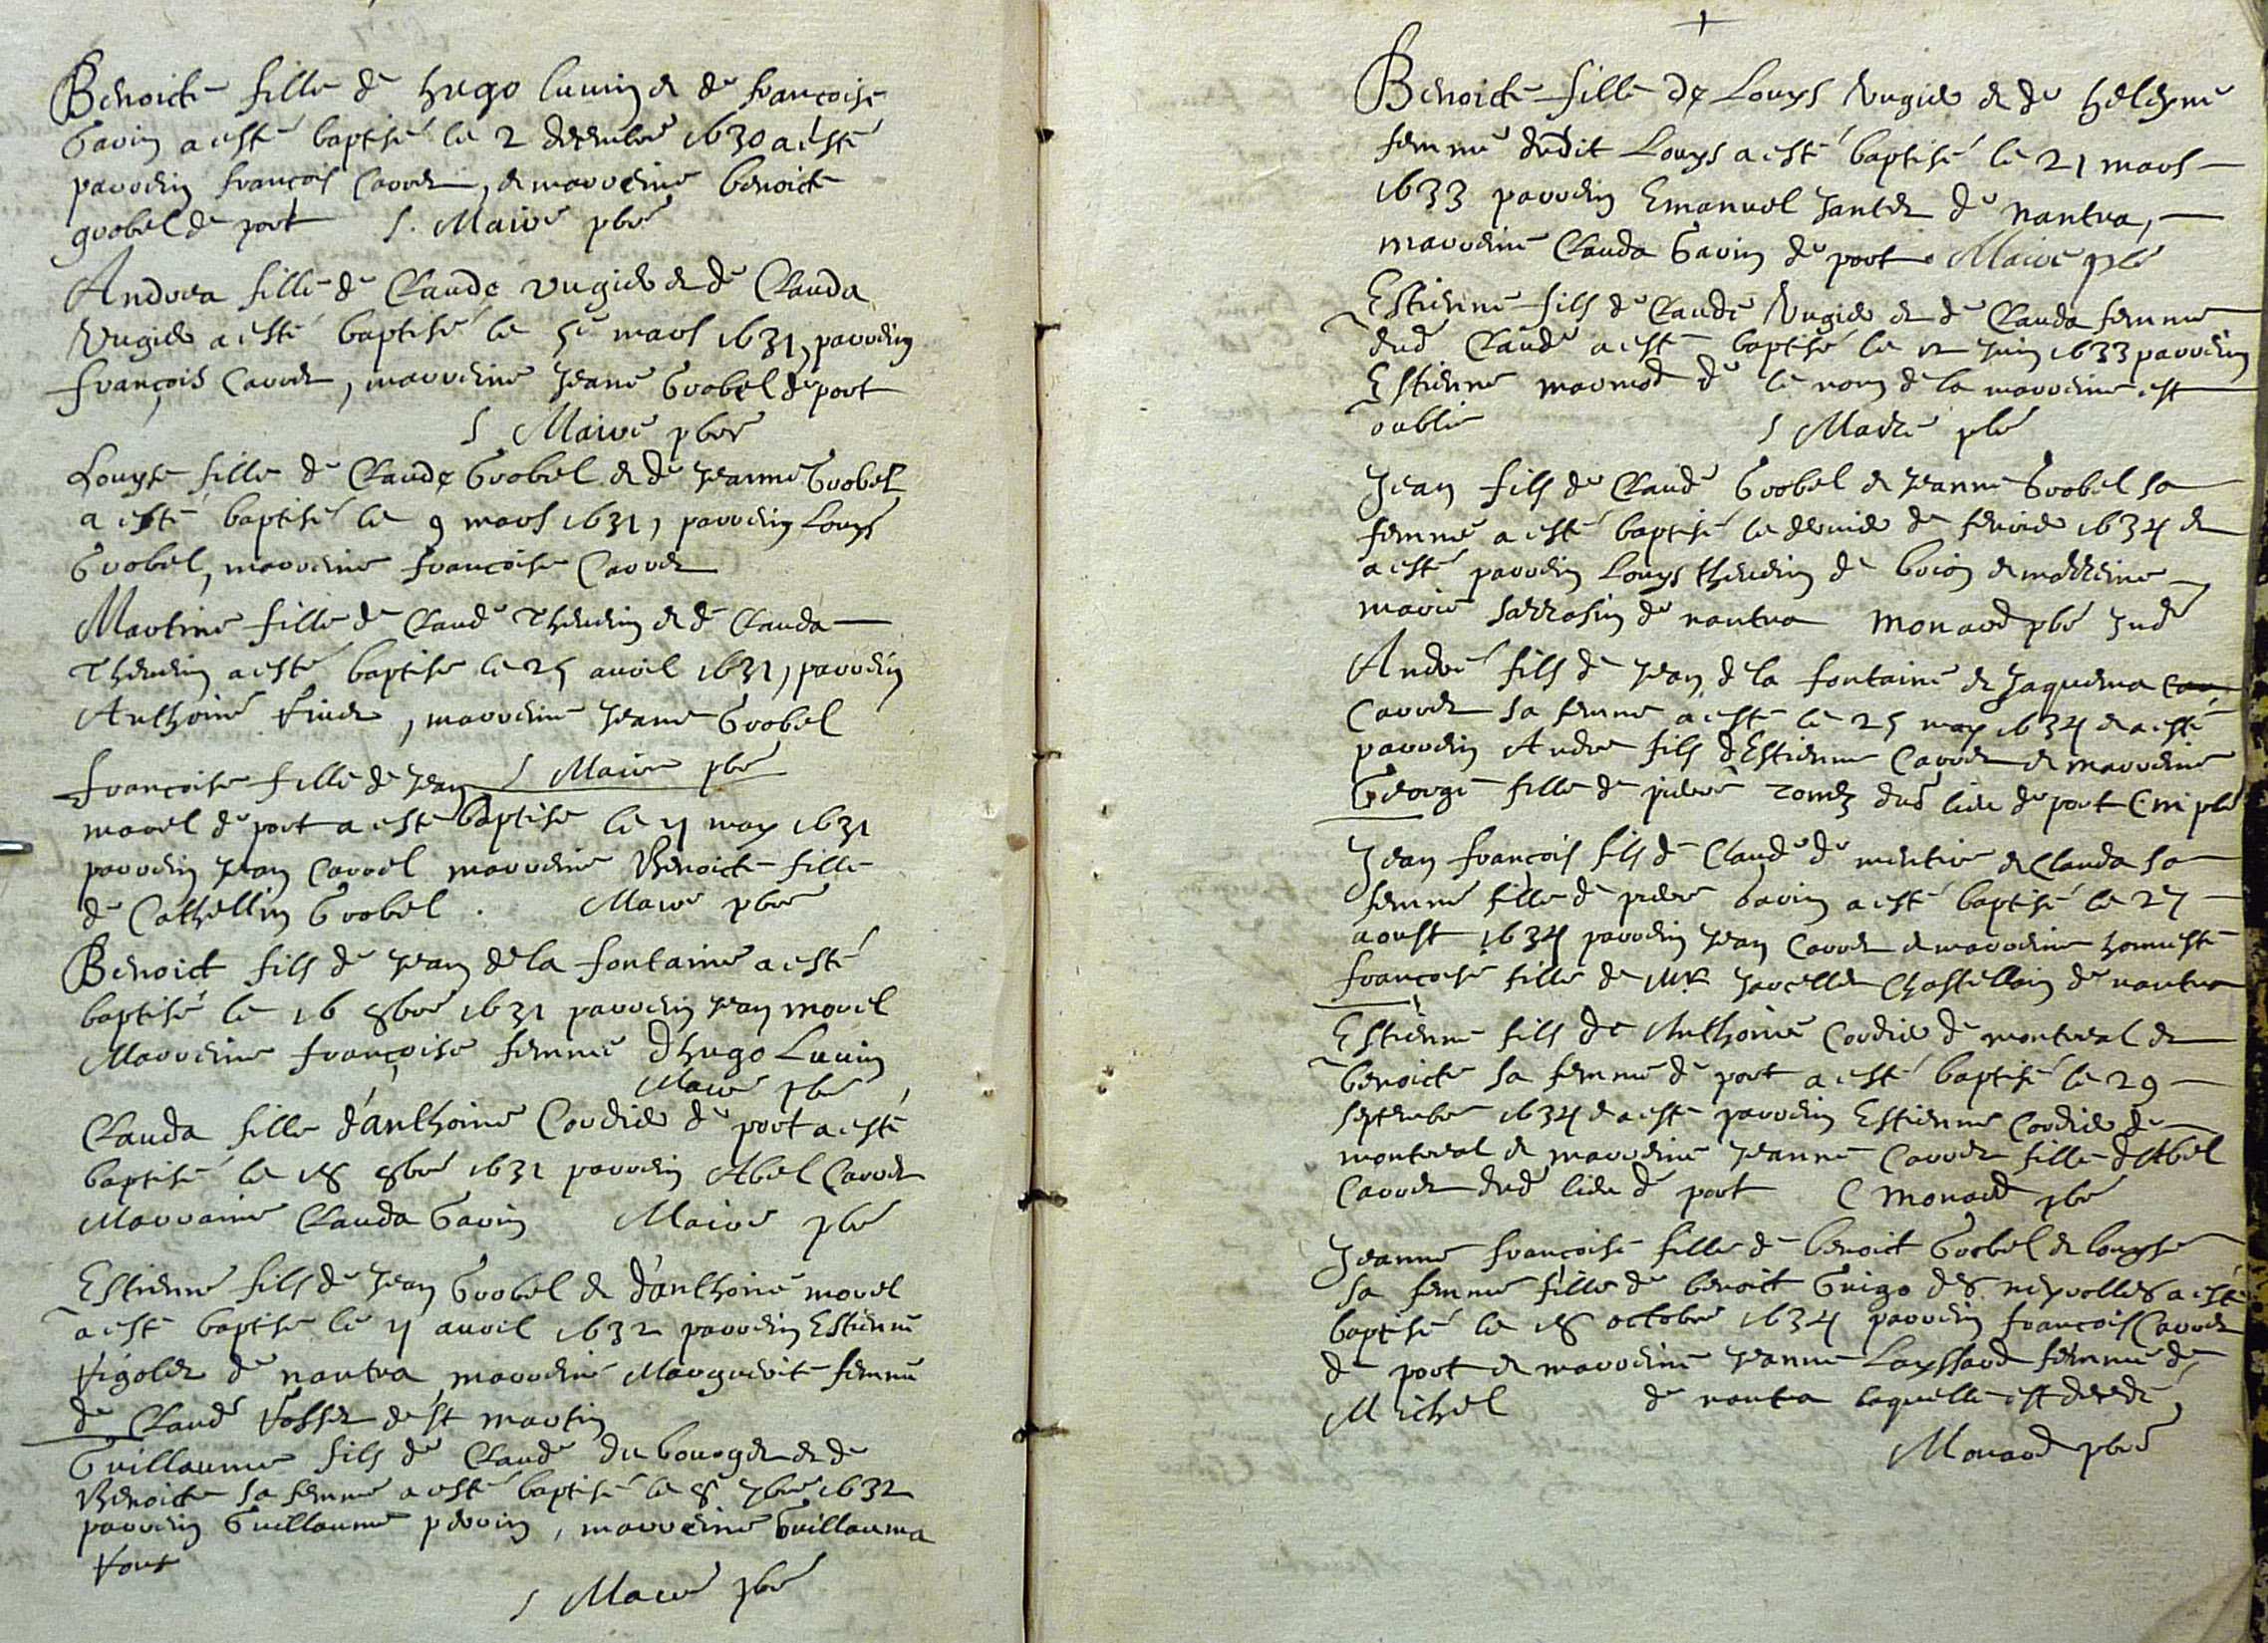 Benoicte fille de hugo luuin et de francoise
Gavin a esté baptisé le 2 decembre 1630 a esté
parrein francois Carret, et marreine benoicte
grobel de port S. Maire pbre
Andrea fille de Claude rugier et de Clauda
Rugier a esté baptisé le 5e mars 1631, parrein
françois Carret, marreine Jeane Grobel de port
S Maire pbre
Louyse fille de Claude Grobel et de Jeanne Grobel
a esté baptisé le 9 mars 1631, parrein Louys
Grobel, marreine francoise Carret
Martine fille de Claude Thevenin et de Clauda
Thevenin a esté baptise le 25 avril 1631, parrein
Anthoine, marreine Jeane Grobel
francoise fille de Jean S Maire pbre
morel de port a esté baptise le 11 may 1631
parrein Jean Carrel marreine Benoicte fille
de Cathellin Grobel. Maire pbre
Benoict fils de Jean de la fontaine a esté
baptisé le 16 8bre 1631 parrein Jean morel
Marreine françoise femme d'hugo Luuin
Maire pbre
Clauda fille d'anthoine Cordier de port a esté
baptisé le 18 8bre 1631 parrein Abel Carret
Marraine Clauda Gavin Maire pbre
Estienne fils de Jean Grobel et d'anthoine morel
a esté baptisé le 11 avril 1632 parrein Estienne
Vigolet de nantua marreine Marguerite femme
de Claude Fosset de st martin
Guillaume fils de Claude du bourget et de
Benoicte sa femme a esté baptisé le 8 7bre 1632
parrein Guillaume perrin, marreine Guillauma
S Maire pbre
Benoicte fille de Louys Rugier et de heleyne
femme dudit Louys a esté baptisé le 21 mars
1633 parrein Emanuel Jantet de Nantua,
marreine Clauda Gavin de port. Maire pbre
Estienne fils de Claude Rugier et de Clauda femme
dud Claude a esté baptisé le 12 Juin 1633 parrein
Estienne marmod de le nom de la marreine est
oublié S Maire pbre
Jean fils de Claude Grobel et Jeanne Grobel sa
femme a esté baptisé le dernier de fevrier 1634 et
a esté parrein Louys thevenin de brion et marreine
marie sarrasin de nantua Monard pbre
André fils de Jean de la fontaine et Jaquema
Carret sa femme a esté le 25 may 1634 et a esté
parrein Andre fils d'Estienne Carret et marreine
George fille de pierre dud lieu de port CM pbre
Jean françois fils de Claude de mentire et Clauda sa
femme fille de pierre Gavin a esté baptisé le 27
aoust 1634 parrein Jean Carret et marreine honneste
françoise fille de Mr Jarcellet Chastellain de nantua
Estienne fils de Anthoine Cordier de montreal et
benoicte sa femme de port a esté baptisé le 29
septembre 1634 et a esté parrein Estienne Cordier de
montreal et marreine Jeanne Carret fille d'Abel
Carret dud lieu de port C Monard pbre
Jeanne françoise fille de benoict Grobel et louyse
sa femme fille de benoit Guigo des neyrolles a esté
baptisé le 18 octobre 1634 parrein francois Carret
de port et marreine Jeanne Layssard femme de
Michel de nantua laquelle est decede
Monard pbre